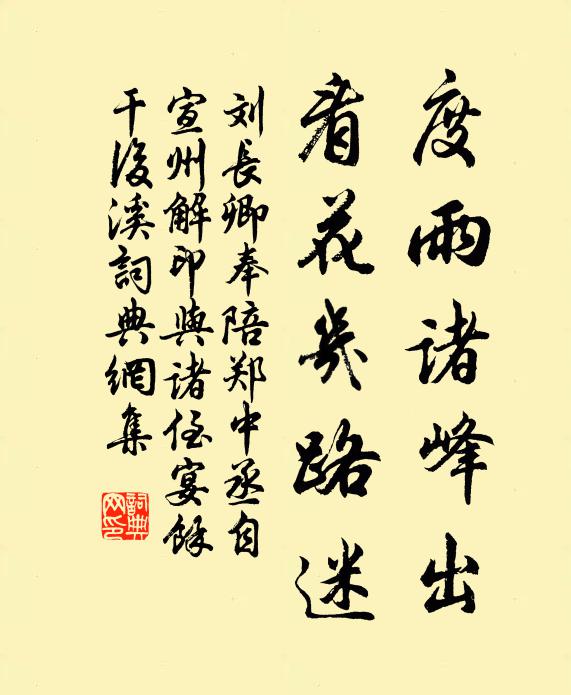 度雨诸峰出
看花幾路迷
刘長卿奉陪郑中丞自
宣州解印與诸侄宴餘
干後溪詞典網集
詞典
网印